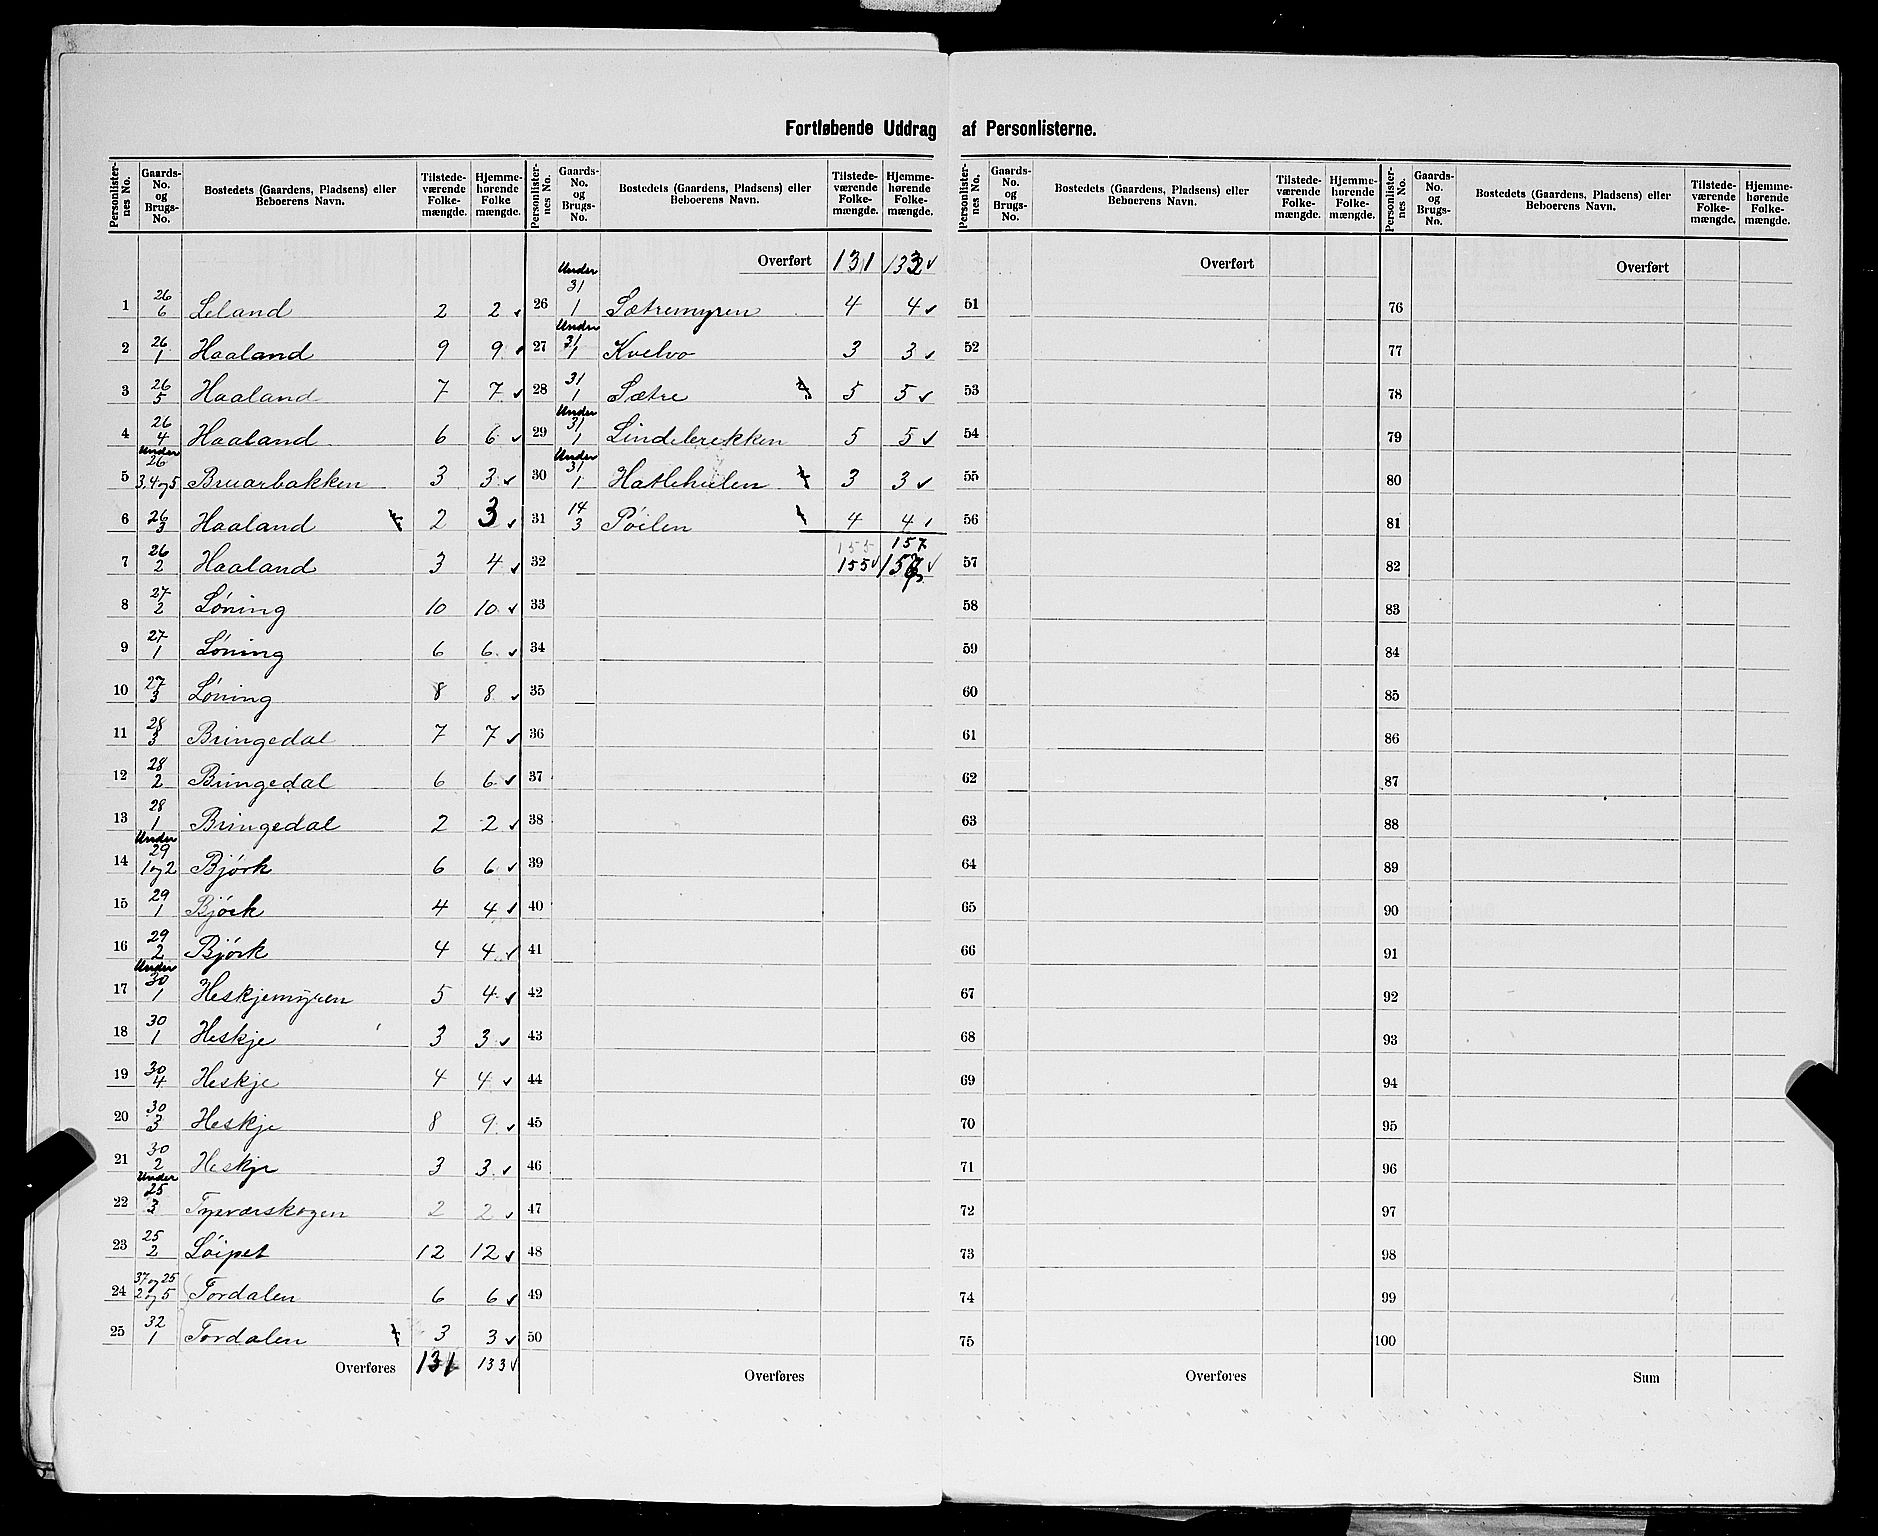 Fortløbende Uddrag af Personlisterne.
Personlisternes No. | Gaards-No. og Brugs-No. | Bostedets (Gaardens, Pladsens) eller Beboerens Navn. | Tilstedeværende Folkemængde. | Hjemmehørende Folkemængde.
1 | 26 6 | Leland | 2 | 2
2 | 26 1 | Haaland | 9 | 9
3 | 26 5 | Haaland | 7 | 7
4 | 26 4 | Haaland | 6 | 6
5 | Under 26 3, 4 og 5 | Bruarbakken | 3 | 3
6 | 26 3 | Haaland | 2 | 3
7 | 26 2 | Haaland | 3 | 4
8 | 27 2 | Løning | 10 | 10
9 | 27 1 | Løning | 6 | 6
10 | 27 3 | Løning | 8 | 8
11 | 28 3 | Bringedal | 7 | 7
12 | 28 2 | Bringedal | 6 | 6
13 | 28 1 | Bringedal | 2 | 2
14 | Under 29 1 og 2 | Bjørk | 6 | 6
15 | 29 1 | Bjørk | 4 | 4
16 | 29 2 | Bjørk | 4 | 4
17 | Under 30 1 | Heskjemyren | 5 | 4
18 | 30 1 | Heskje | 3 | 3
19 | 30 4 | Heskje | 4 | 4
20 | 30 3 | Heskje | 8 | 9
21 | 30 2 | Heskje | 3 | 3
22 | Under 25 3 | Tysværskogen | 2 | 2
23 | 25 2 | Løipet | 12 | 12
24 | 37 og 25 2 og 5 | Tordalen | 6 | 6
25 | 32 1 | Tordalen | 3 | 3
Overføres | 131 | 133
Personlisternes No. | Gaards-No. og Brugs-No. | Bostedets (Gaardens, Pladsens) eller Beboerens Navn. | Tilstedeværende Folkemængde. | Hjemmehørende Folkemængde.
Overført | 131 | 133
26 | Under 31 1 | Sætremyren | 4 | 4
27 | Under 31 1 | Kvelvo | 3 | 3
28 | 31 1 | Sætre | 5 | 5
29 | Under 31 1 | Lindebrekken | 5 | 5
30 | Under 31 1 | Hatlehielen | 3 | 3
31 | 14 3 | Pøilen | 4 | 4
155 | 157
32 | 155 | 157
33
34
35
36
37
38
39
40
41
42
43
44
45
46
47
48
49
50
Overføres
Personlisternes No. | Gaards-No. og Brugs-No. | Bostedets (Gaardens, Pladsens) eller Beboerens Navn. | Tilstedeværende Folkemængde. | Hjemmehørende Folkemængde.
Overført
51
52
53
54
55
56
57
58
59
60
61
62
63
64
65
66
67
68
69
70
71
72
73
74
75
Overføres
Personlisternes No. | Gaards-No. og Brugs-No. | Bostedets (Gaardens, Pladsens) eller Beboerens Navn. | Tilstedeværende Folkemængde. | Hjemmehørende Folkemængde.
Overført
76
77
78
79
80
81
82
83
84
85
86
87
88
89
90
91
92
93
94
95
96
97
98
99
100
Sum